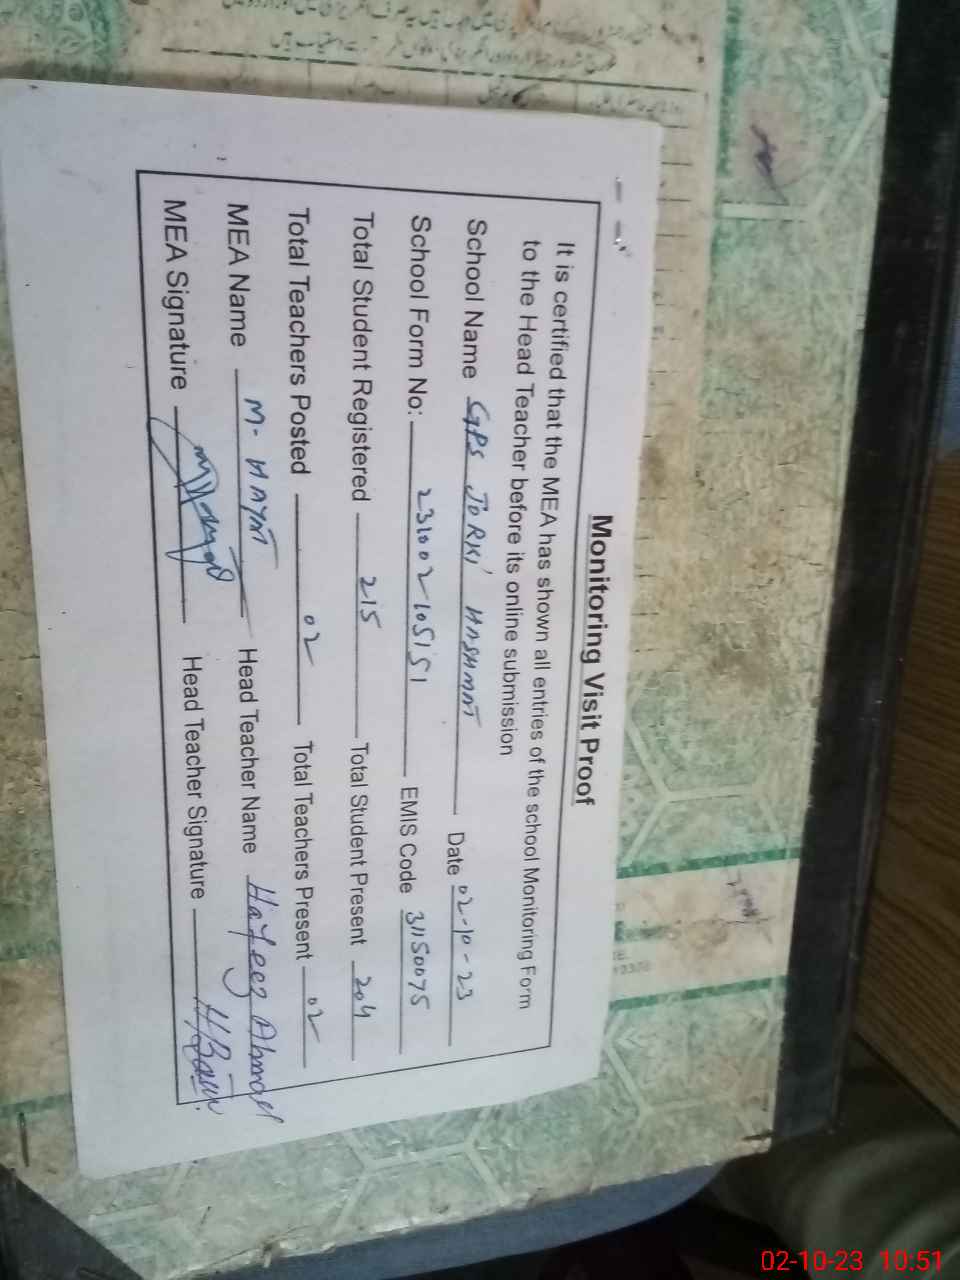 Monitoring Visit Proof
It is certified that the MEA has shown all entries of the school Monitoring Form
to the Head Teacher before its online submission
School Name GPS JORKI HASHMAT Date 02-10-23
School Form No: 231002105151 EMIS Code 31150075
Total Student Registered 215 Total Student Present 204
Total Teachers Posted 02 Total Teachers Present 02
MEA Name M. HAYAT Head Teacher Name Hafeez Ahmad
MEA Signature Head Teacher Signature
02-10-23 10:51